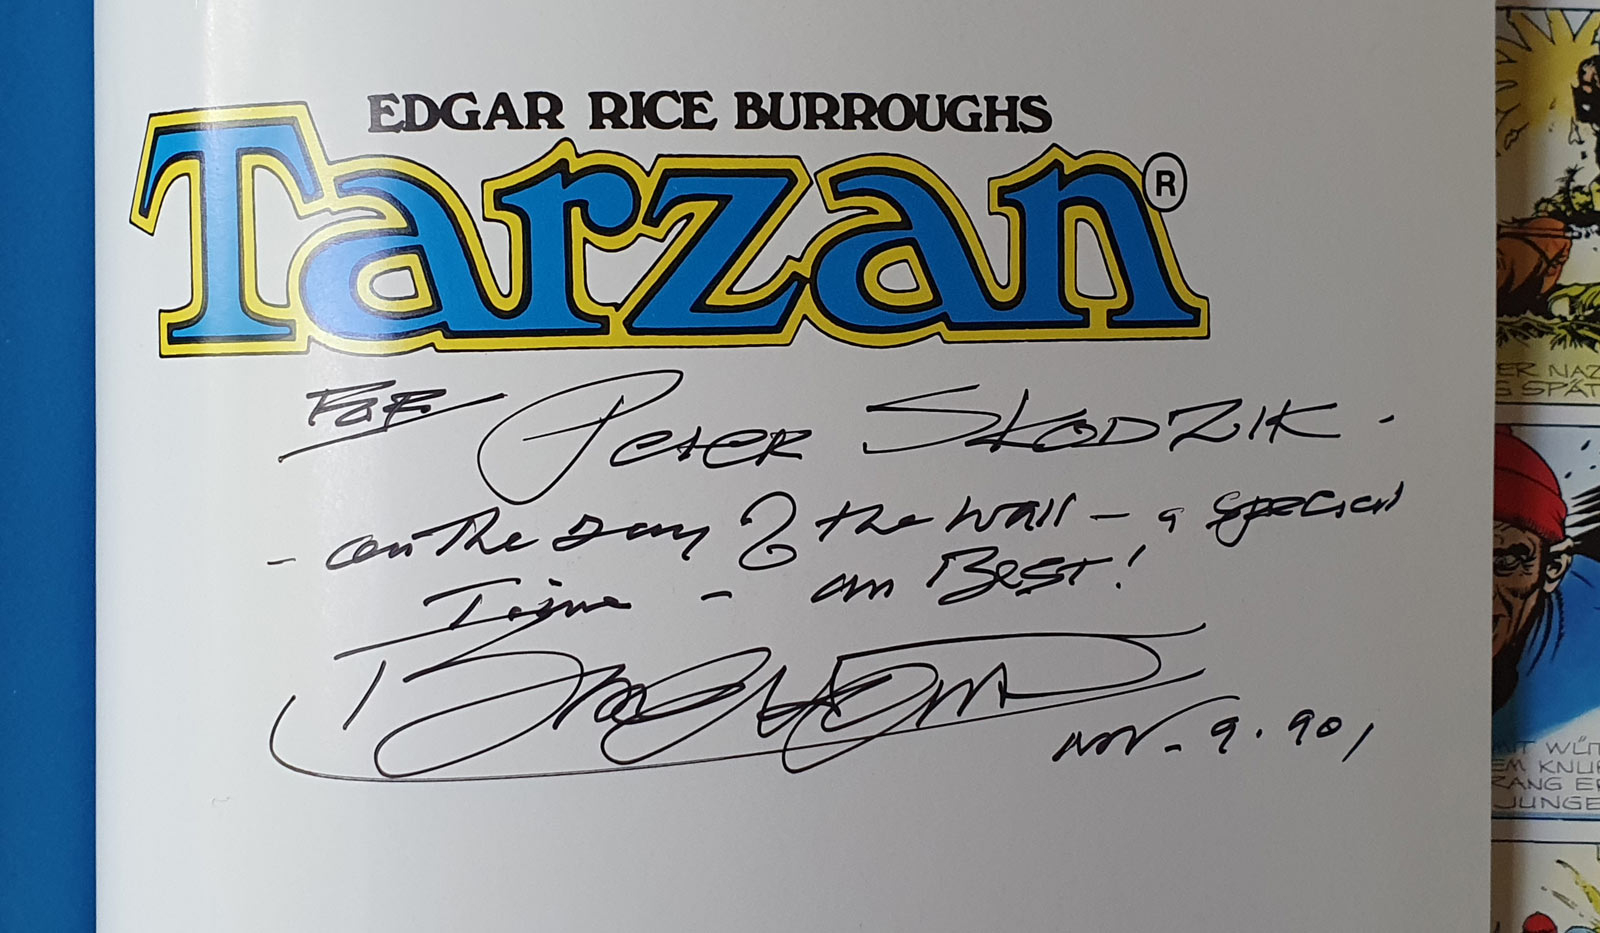 EDGAR RICE BURROUGHS
Tarzan®
FOR PETER SKODZIK -
- on the Day of the Wall - a special
Time - an Best!
Burne Hogarth
Nov. 9. 90,
ER NAZ
G SPÄT
MIT WÜT
EM KNUR
ZANG ER
JUNGE